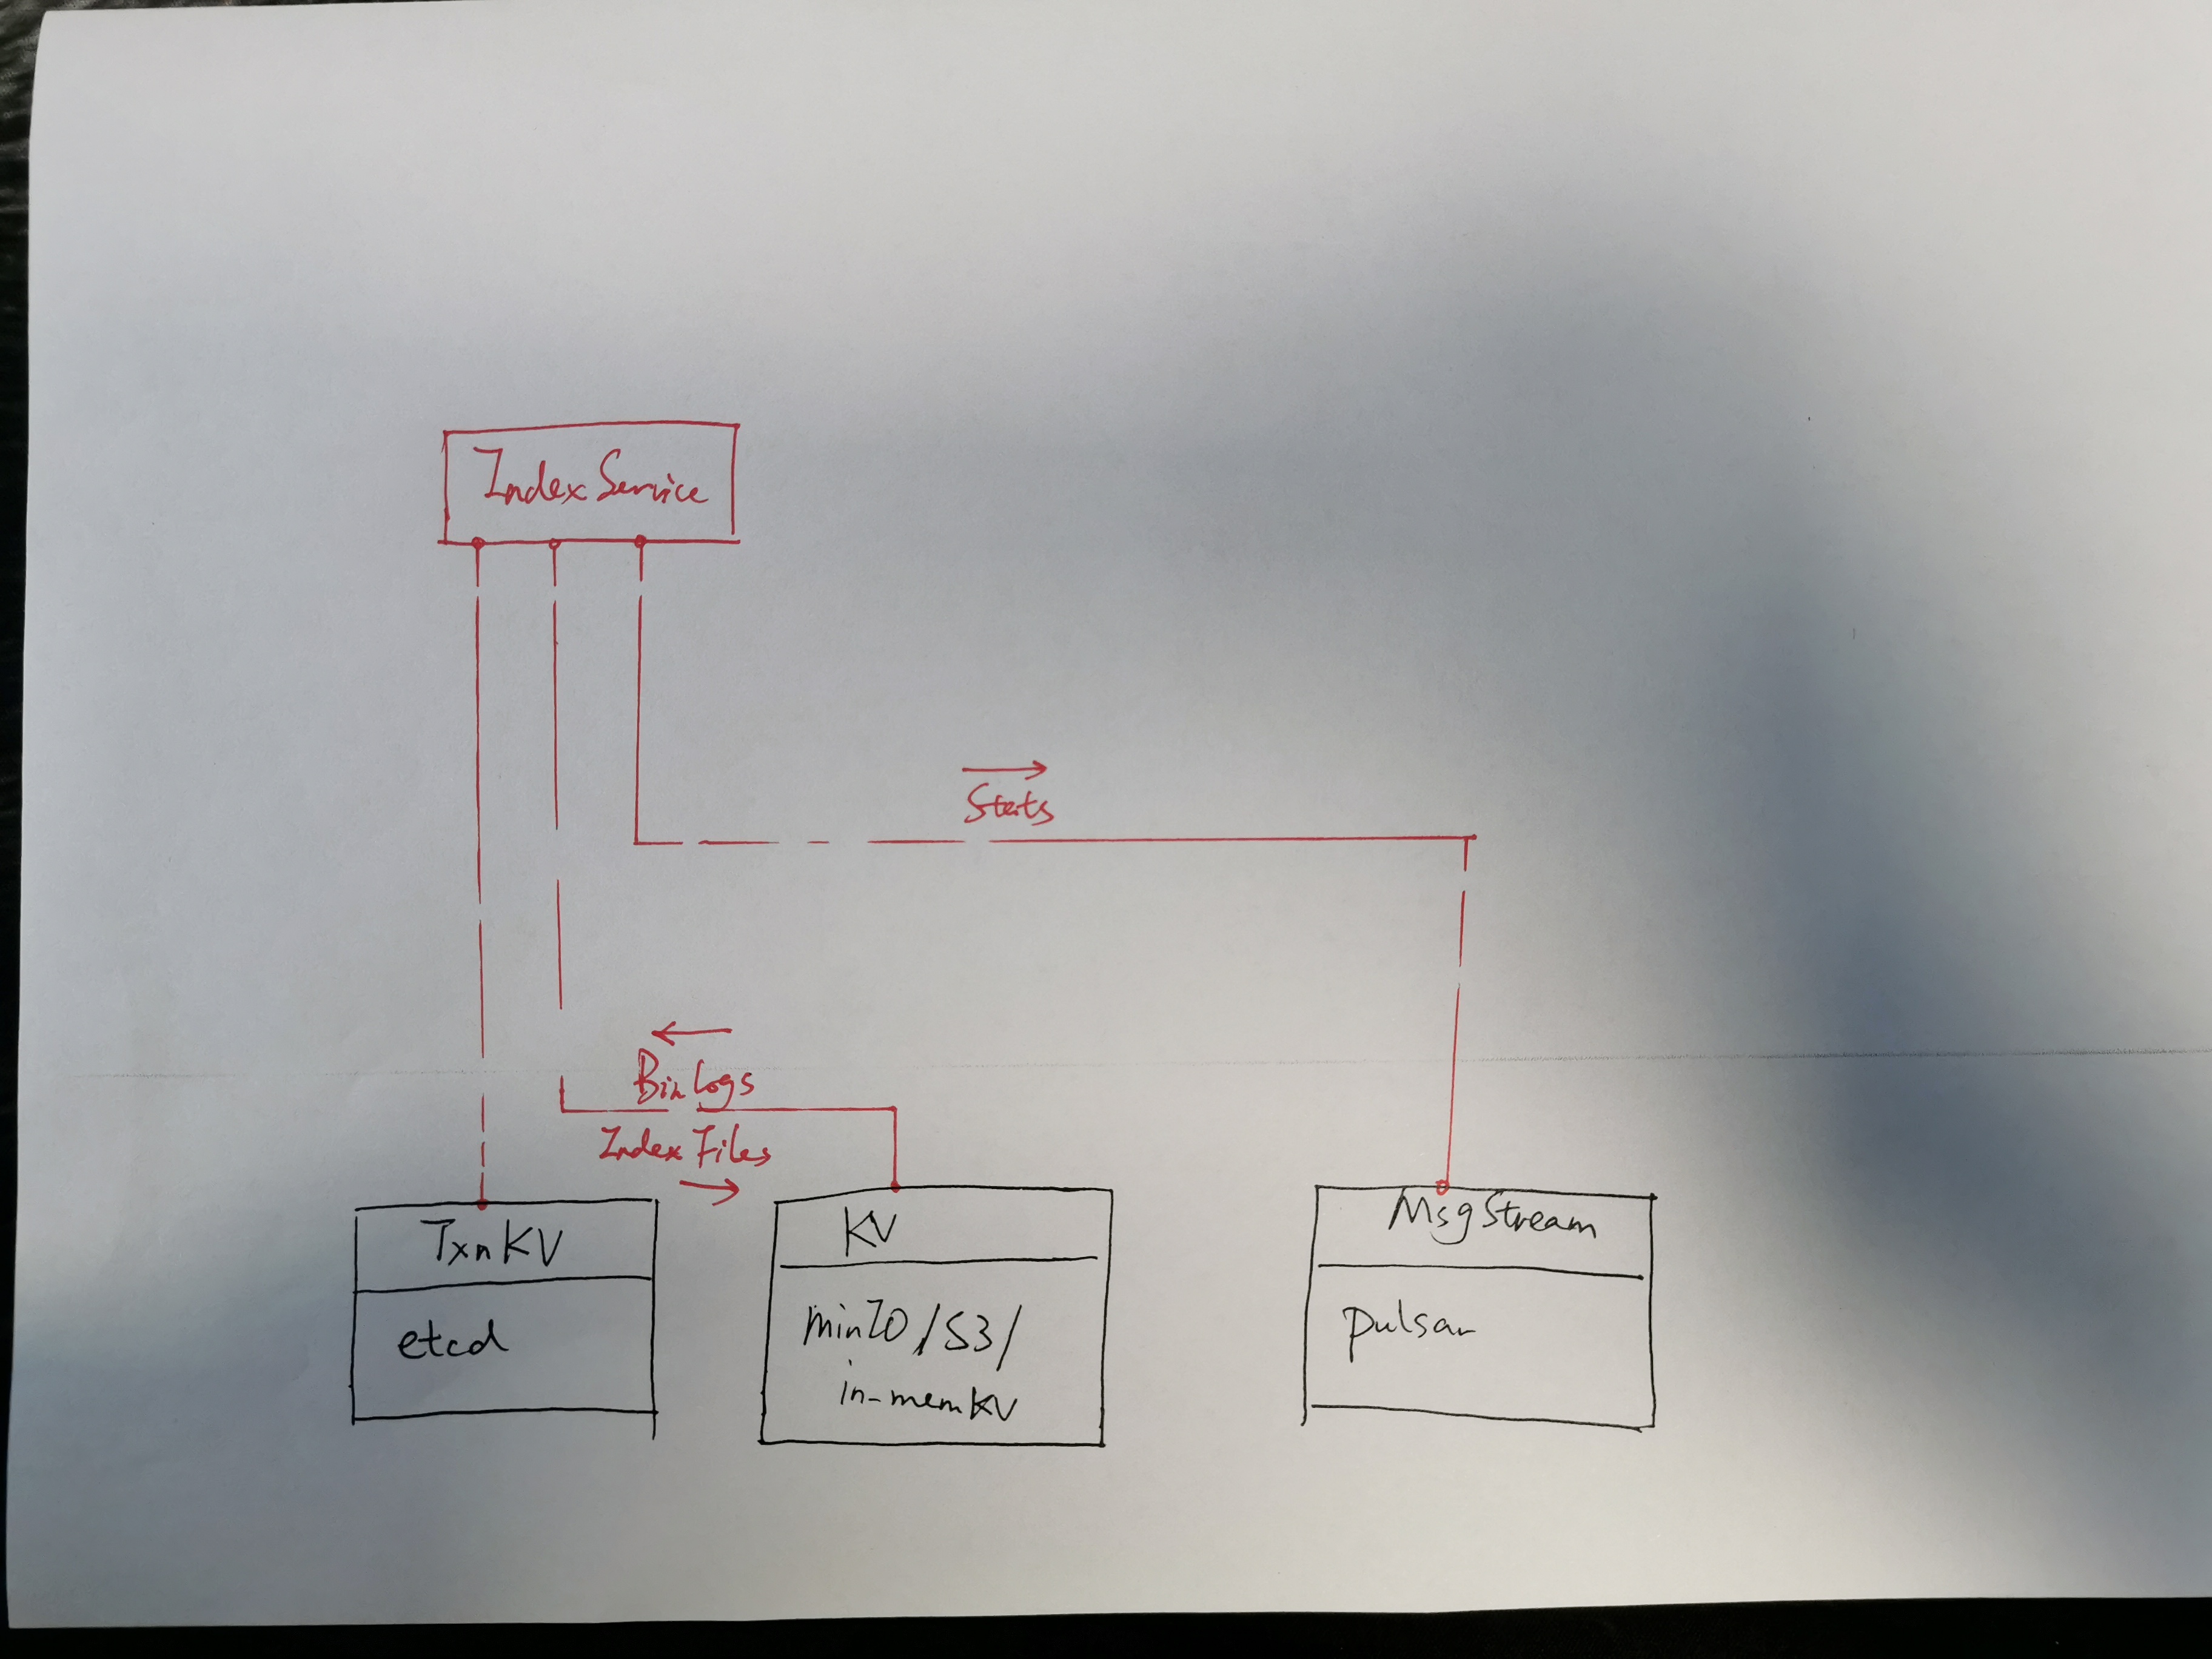 Index Service
Stats
BinLogs
Index Files
TxnKV
etcd
KV
minIO/S3/
in-memKV
MsgStream
pulsar